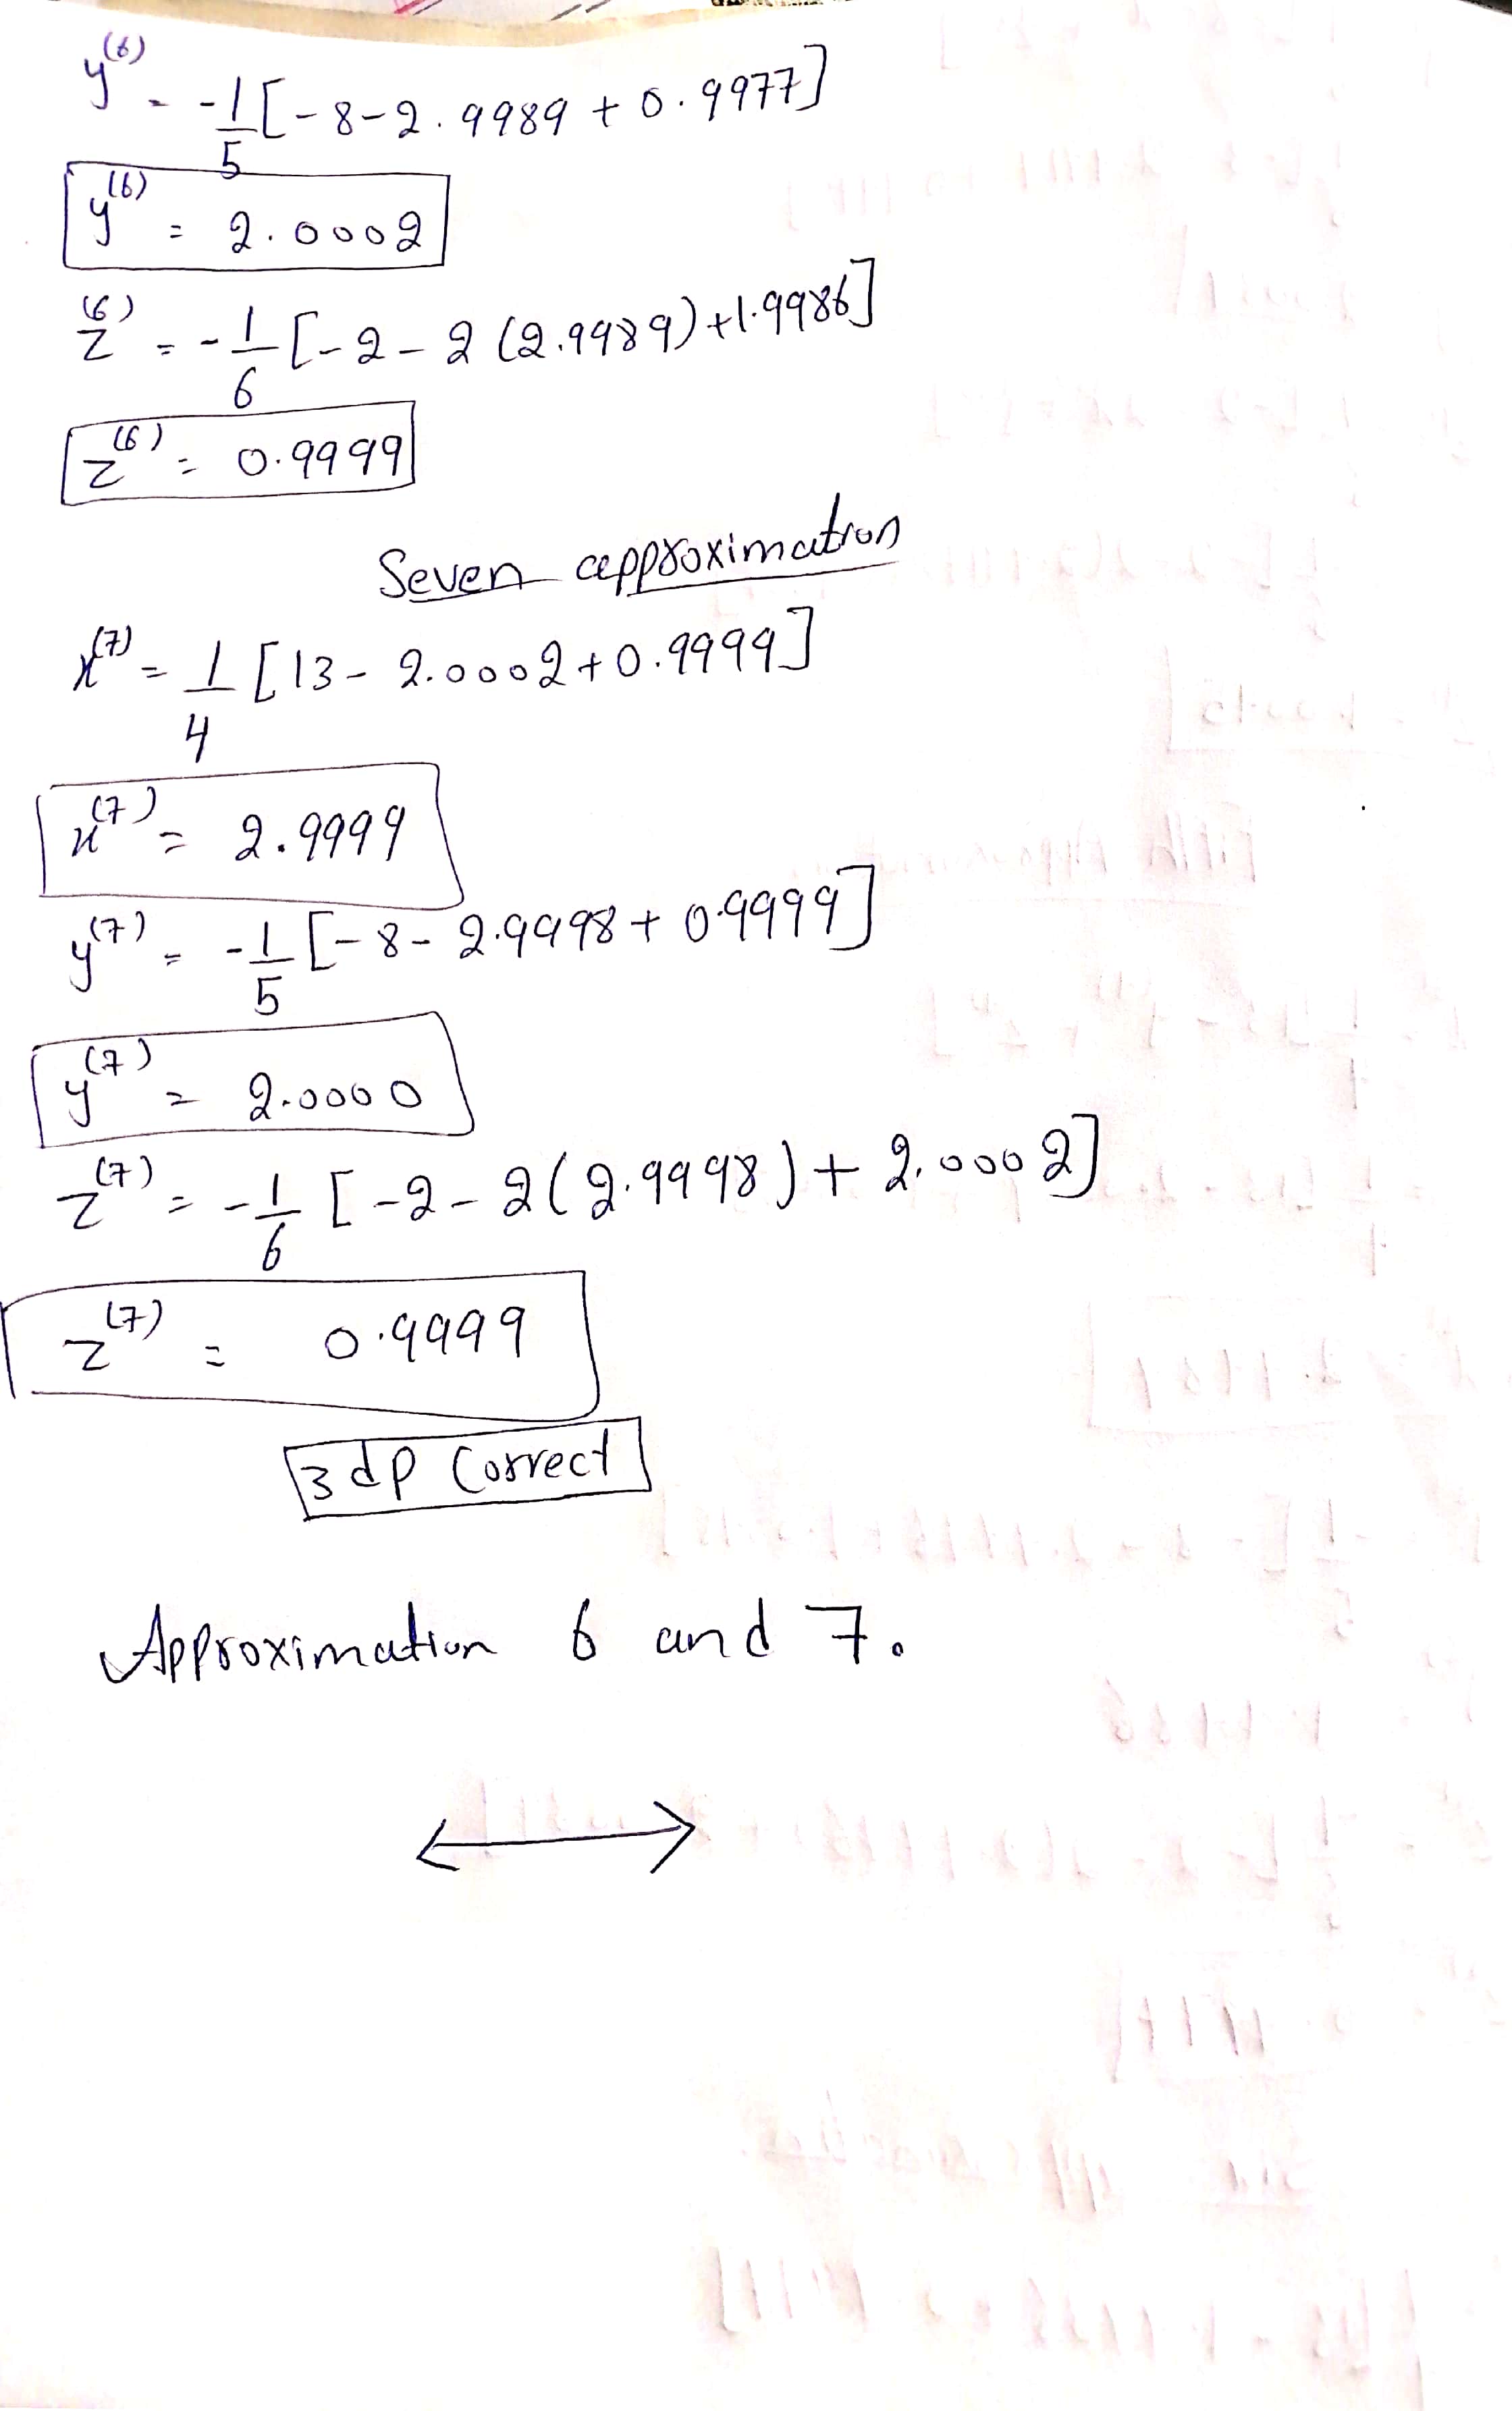 y^(6) = -1/5 [-8-2.9989 + 0.9977]
y^(6) = 2.0002
z^(6) = -1/6 [-2-2(2.9989)+1.9986]
z^(6) = 0.9999
Seven approximation
x^(7) = 1/4 [13-2.0002+0.9999]
x^(7) = 2.9999
y^(7) = -1/5 [-8-2.9998+0.9999]
y^(7) = 2.0000
z^(7) = -1/6 [-2-2(2.9998)+2.0002]
z^(7) = 0.9999
3dp Correct
Approximation 6 and 7.